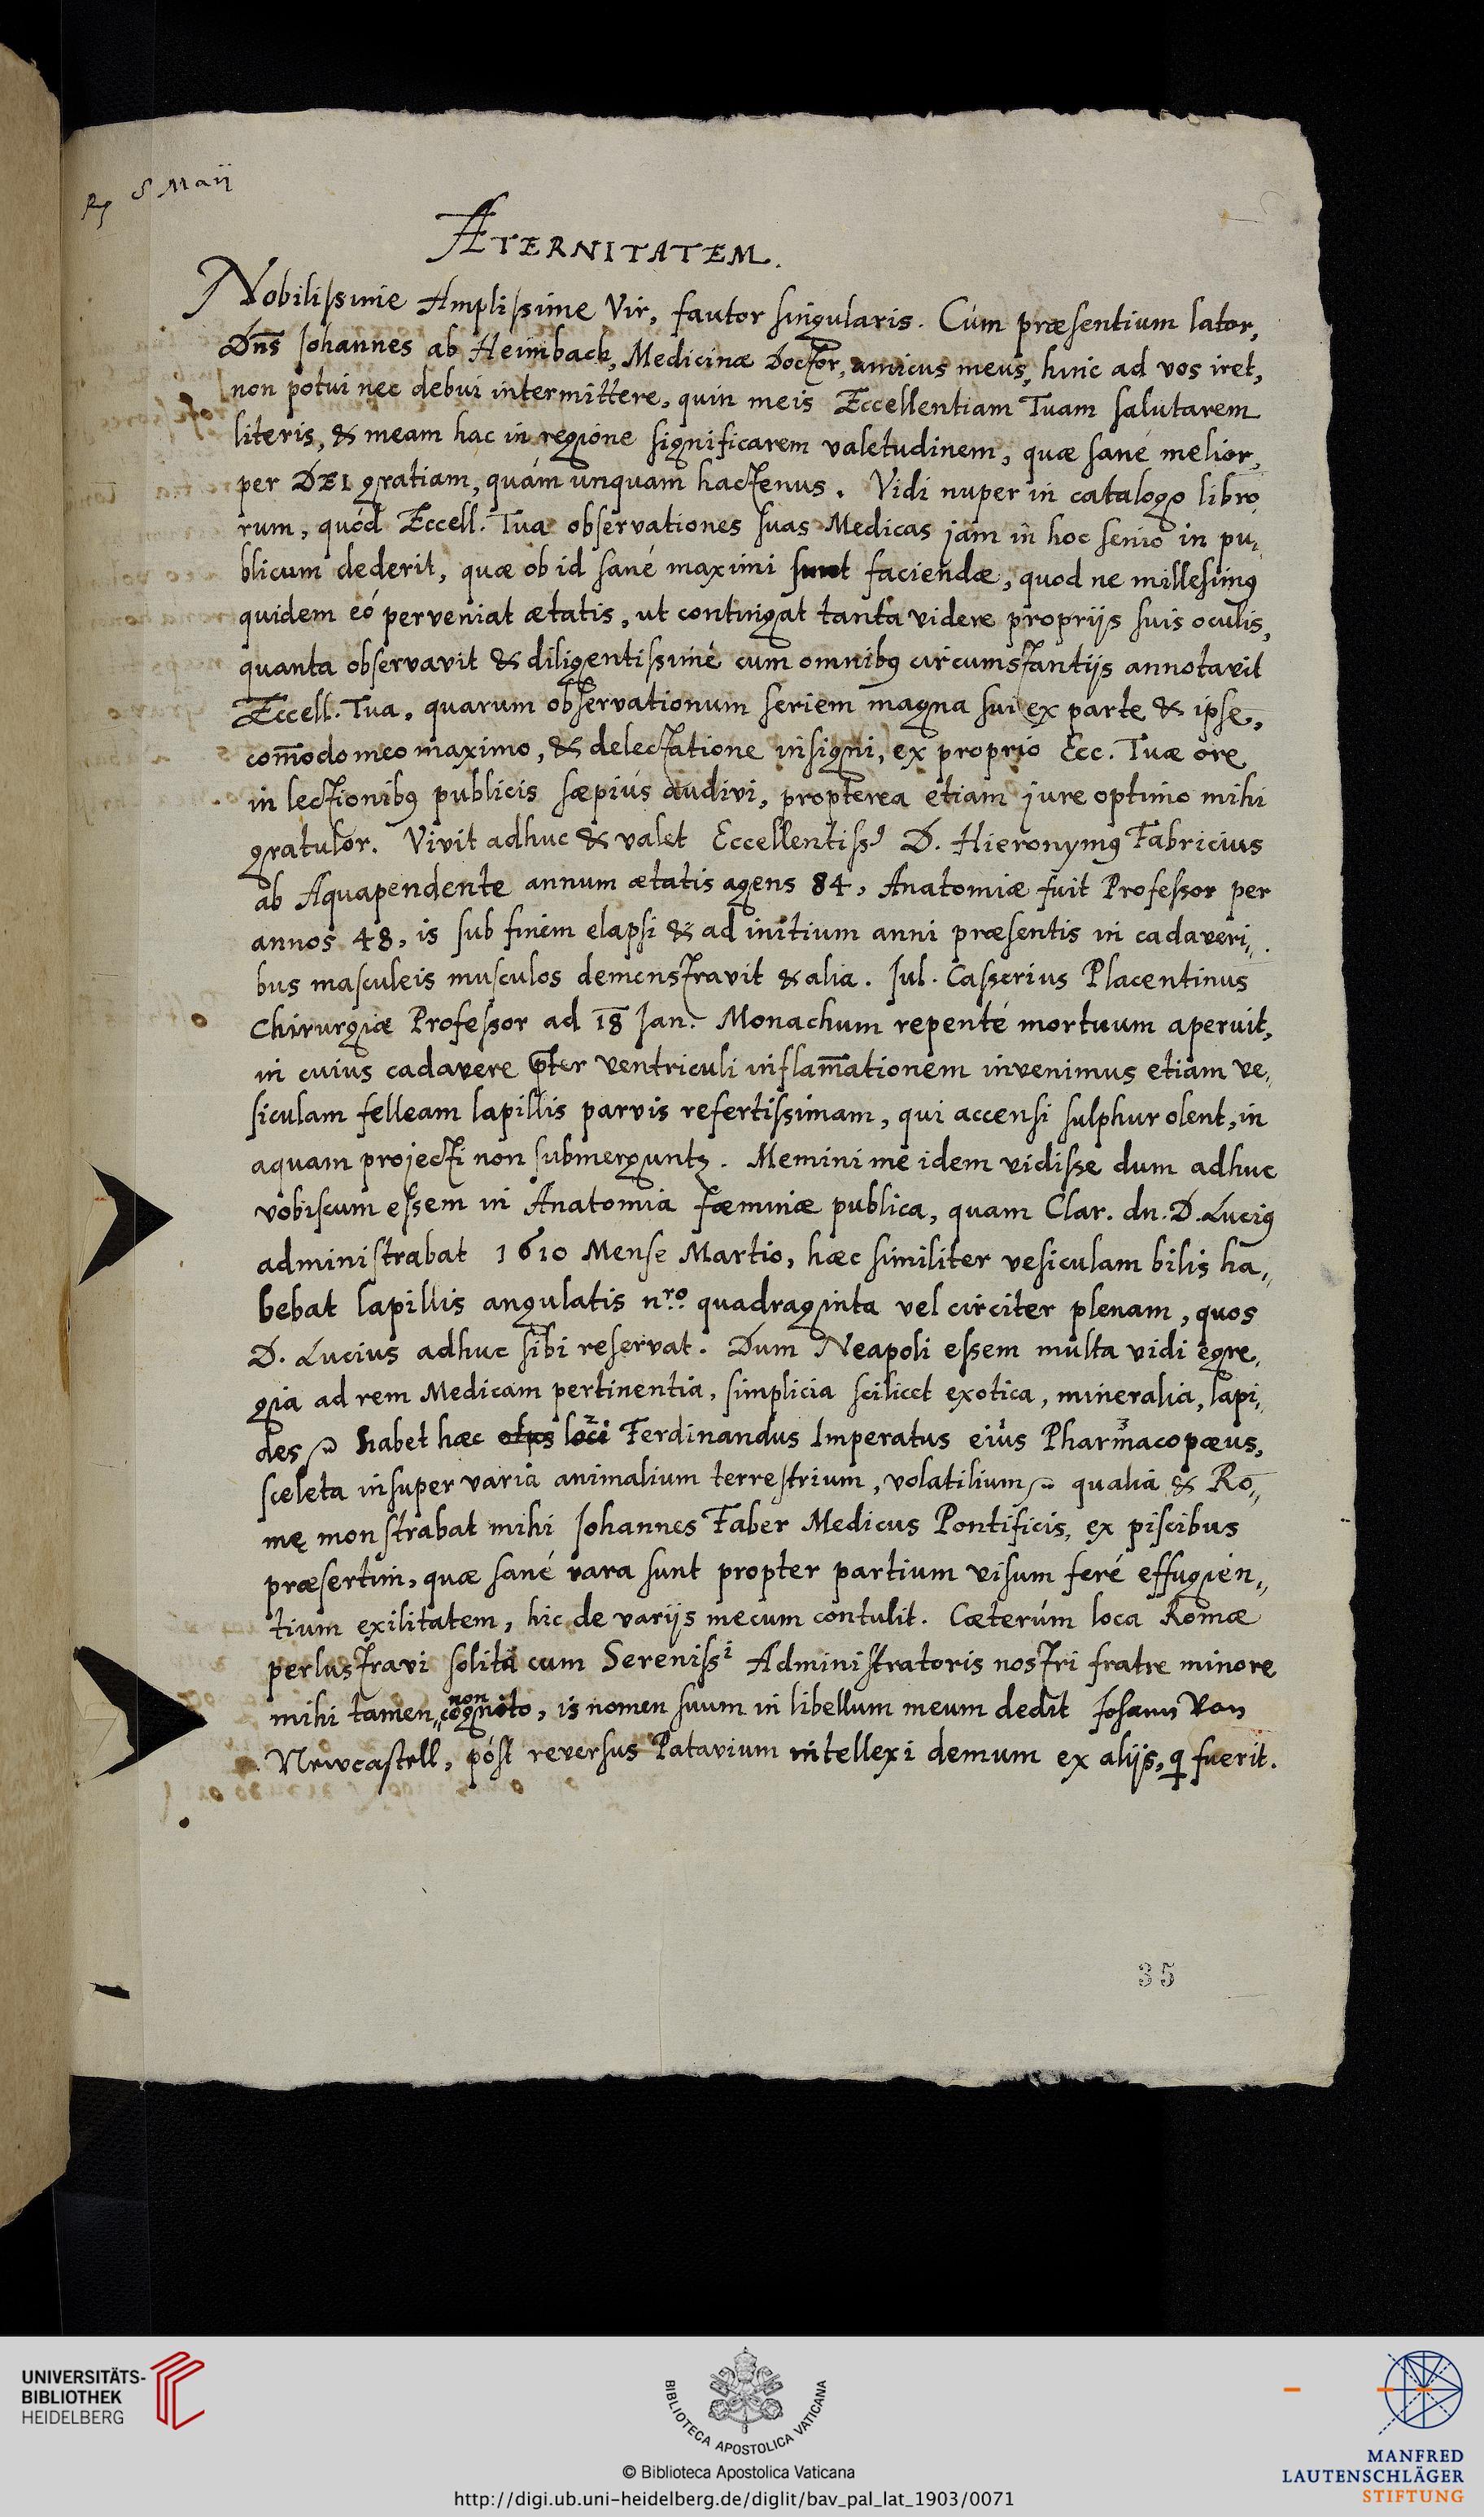 R 5 Maij
ÆTERNITATEM.
Nobilissime Amplissime Vir, fautor singularis. Cúm præsentium lator,
Dn̄s Johannes ab Heimbach, Medicinæ Doctor, amicus meus, hinc ad vos iret,
non potui nec debui intermittere, quin meis Eccellentiam Tuam salutarem
literis, & meam hac in regione significarem valetudinem, quæ sané melior,
per DEI gratiam, quám unquam hactenus. Vidi nuper in catalogo libro,
rum, quód Eccell. Tua observationes suas Medicas jam in hoc senio in pu,,
blicum dederit, quæ ob id sané maximi sunt faciendæ, quod ne millesimꝰ
quidem eó perveniat ætatis, ut contingat tanta videre proprijs suis oculis,
quanta observavit & diligentissimé cum omnibꝰ circumstantijs annotavit
Eccell. Tua, quarum observationum seriem magna sui ex parte & ipse,
com̄odo meo maximo, & delectatione insigni, ex proprio Ecc. Tuæ ore
in lectionibꝰ publicis sæpiús audivi, propterea etiam jure optimo mihi
gratulor. Vivit adhuc & valet Eccellentissꝰ D. Hieronymꝰ Fabricius
ab Aquapendente annum ætatis agens 84, Anatomiæ fuit Professor per
annos 48, is sub finem elapsi & ad initium anni præsentis in cadaveri,,
bus masculeis musculos demonstravit & alia. Jul. Casserius Placentinus
Chirurgiæ Professor ad 18 Jan. Monachum repenté mortuum aperuit,
in cuius cadavere p̄ter ventriculi inflam̄ationem invenimus etiam ve,
siculam felleam lapillis parvis refertissimam, qui accensi sulphur olent, in
aquam projecti non submergunt. Memini me idem vidisse dum adhuc
vobiscum essem in Anatomia fæminæ publica, quam Clar. dn. D. Luciꝰ
administrabat 1610 Mense Martio, hæc similiter vesiculam bilis ha,,
bebat lapillis angulatis nro. quadraginta vel circiter plenam, quos
D. Lucius adhuc sibi reservat. Dum Neapoli essem multa vidi egre,
gia ad rem Medicam pertinentia, simplicia scilicet exotica, mineralia, lapi,,
des habet hæc loci Ferdinandus Imperatus eius Pharmacopæus,
sceleta insuper varia animalium terrestrium, volatilium qualia & Ro,,
mę monstrabat mihi Johannes Faber Medicus Pontificis, ex piscibus
præsertim, quæ sané rara sunt propter partium visum feré effugien,,
tium exilitatem, hic de varijs mecum contulit. Cæterúm loca Romæ
perlustravi solita cum Serenissi Administratoris nostri fratre minore
mihi tamen non cognito, is nomen suum in libellum meum dedit Johann Von
Newcastell, póst reversus Patavium intellexi demum ex alijs, q fuerit.
35
UNIVERSITÄTS-
BIBLIOTHEK
HEIDELBERG
BIBLIOTECA APOSTOLICA VATICANA
© Biblioteca Apostolica Vaticana
http://digi.ub.uni-heidelberg.de/diglit/bav_pal_lat_1903/0071
MANFRED
LAUTENSCHLÄGER
STIFTUNG